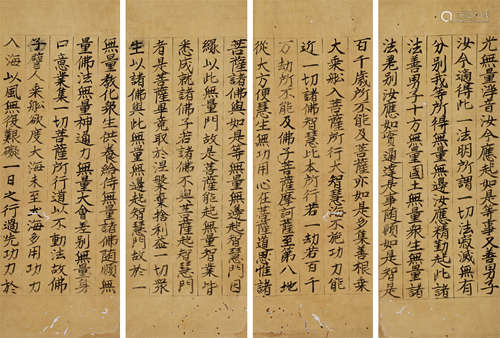 光無量淨音又善男子
汝今適得此一法明所謂一切法寂滅無有
分別我等所得無量無邊汝應精勤起此諸
法善男子十方無量國土無量衆生無量諸
法差別汝應如實通達是事隨順如是智是
百千歲所不能及菩薩亦如是多集善根乘
大乘舩入菩薩所行大智慧海不施功力能
近一切諸佛智慧比本所行若一劫若百千
万劫所不能及佛子菩薩摩訶薩至第八地
從大方便慧生無功用心在菩薩道思惟諸
菩薩諸佛與如是等無量無邊起智慧門因
緣以此無量門故是菩薩能起無量智業皆
悉成就諸佛子若諸佛不與菩薩起智慧門
者是菩薩畢竟取於涅槃棄捨利益一切衆
生以諸佛與此無量無邊起智慧門故於一
無量教化衆生供養給侍無量諸佛隨順無
量佛法無量神通力無量大會差別無量身
口意業集一切菩薩所行道以不動法故佛
子譬人乘舩欲度大海未至大海多用功力
入海以風無復艱礙一日之行過先功力於